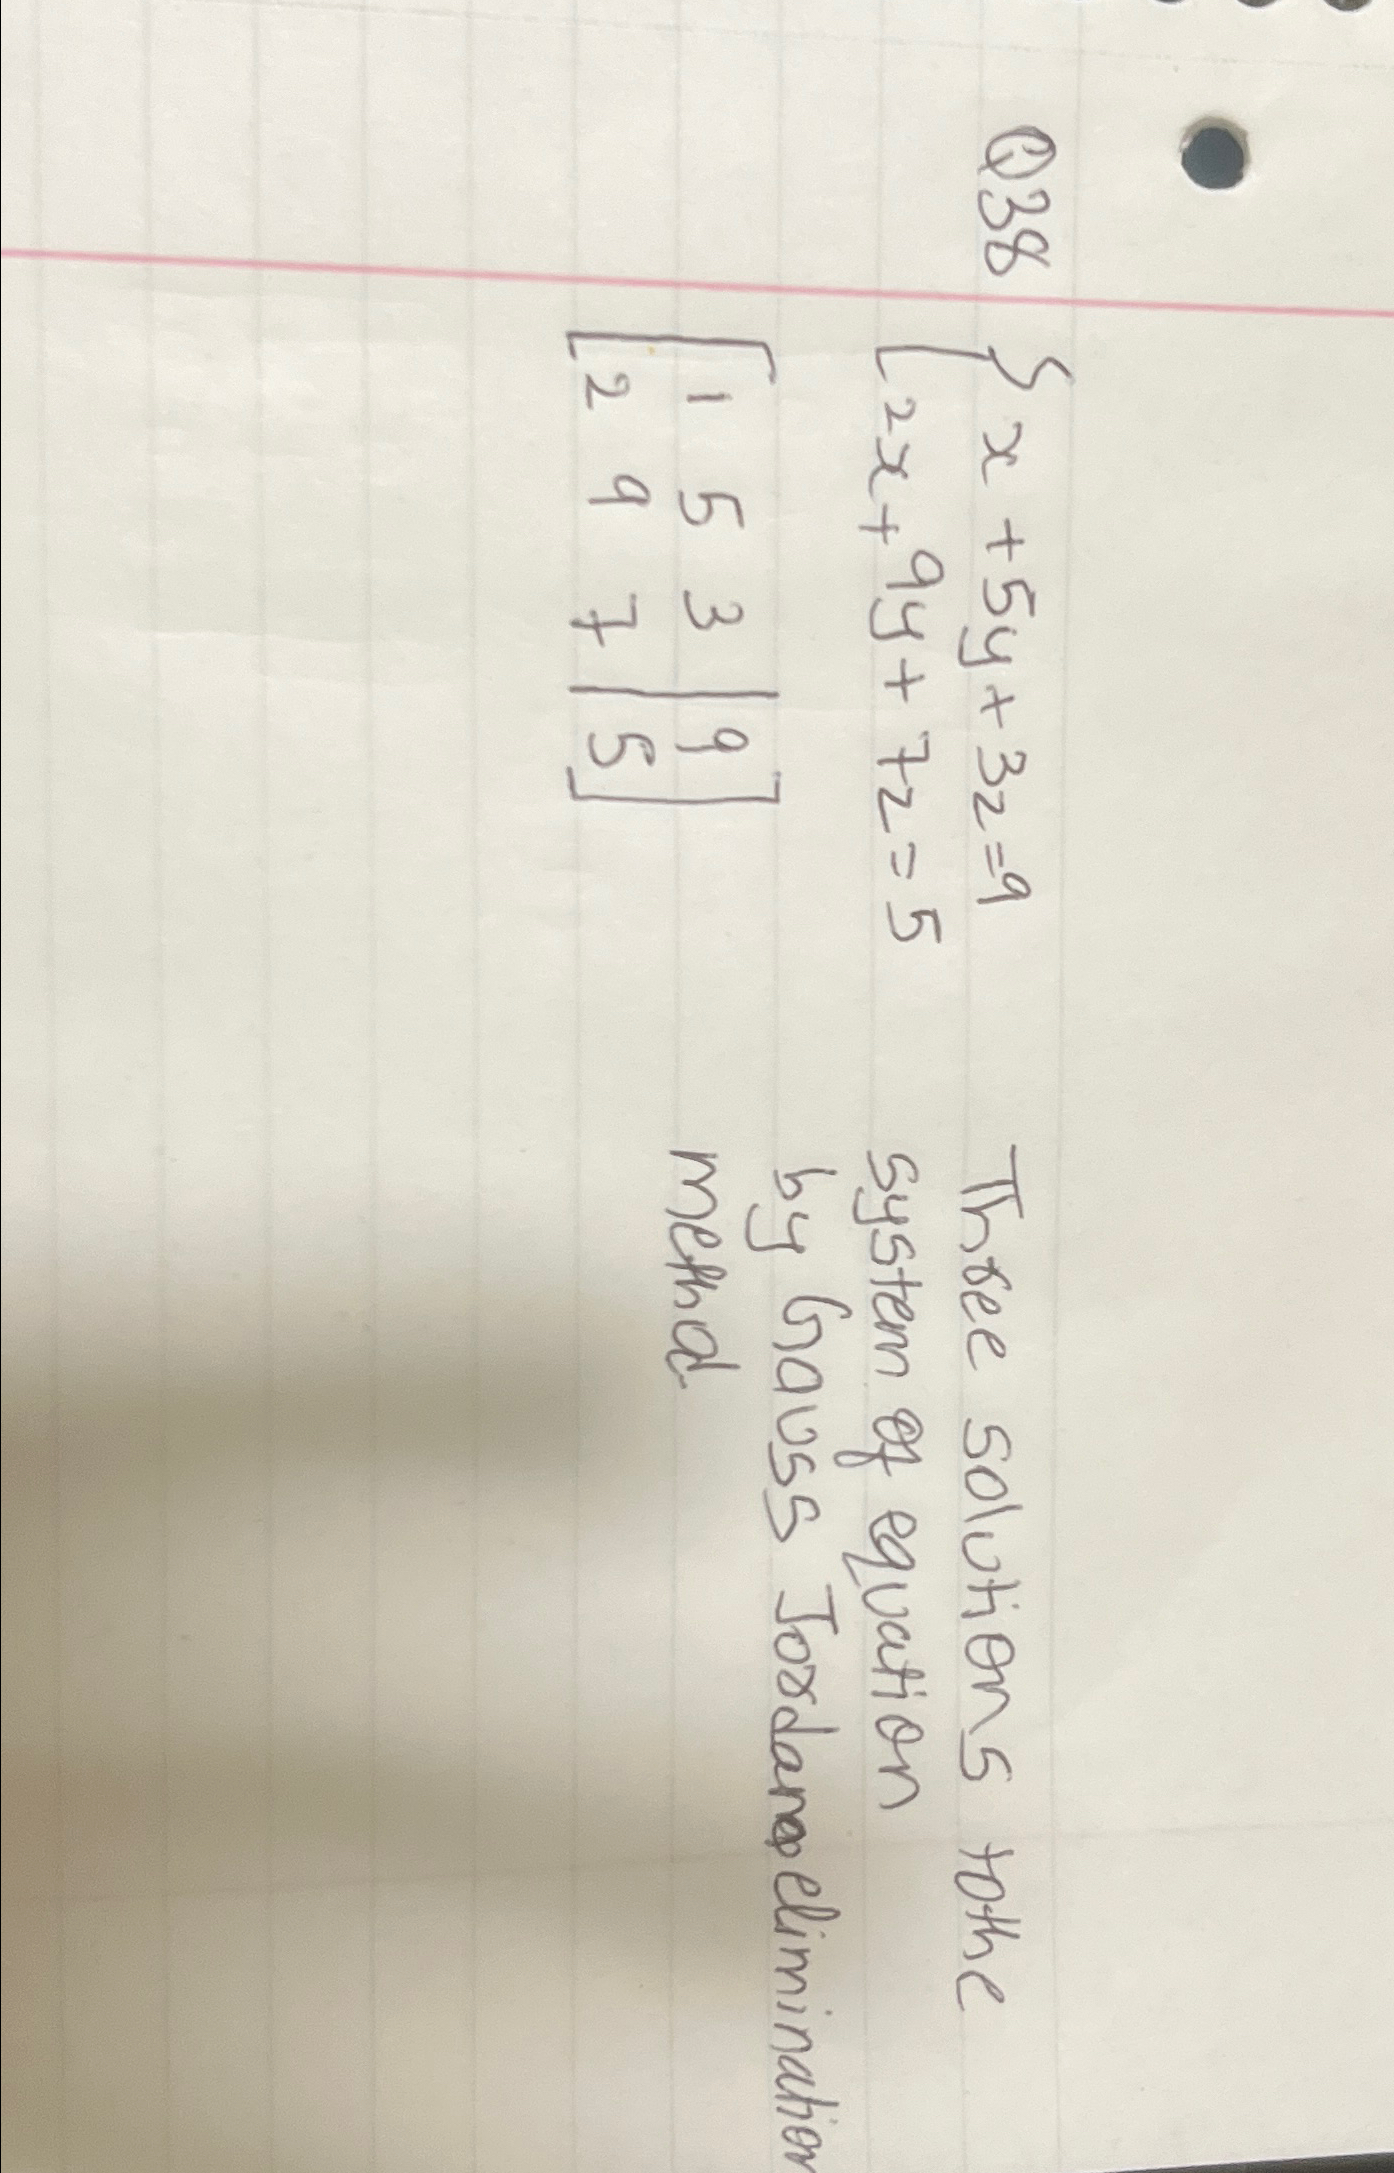 Q38 { x + 5y + 3z = 9
2x + 9y + 7z = 5
[ 1 5 3 | 9
2 9 7 | 5 ]
Three solutions to the
system of equation
by Gauss Jordan elimination
method